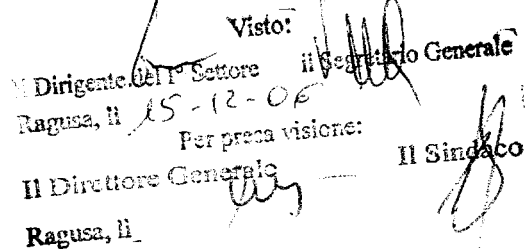 Visto:
Il Dirigente del I° Settore il Segretario Generale
Ragusa, li 15-12-06
Per presa visione:
Il Direttore Generale Il Sindaco
Ragusa, li_